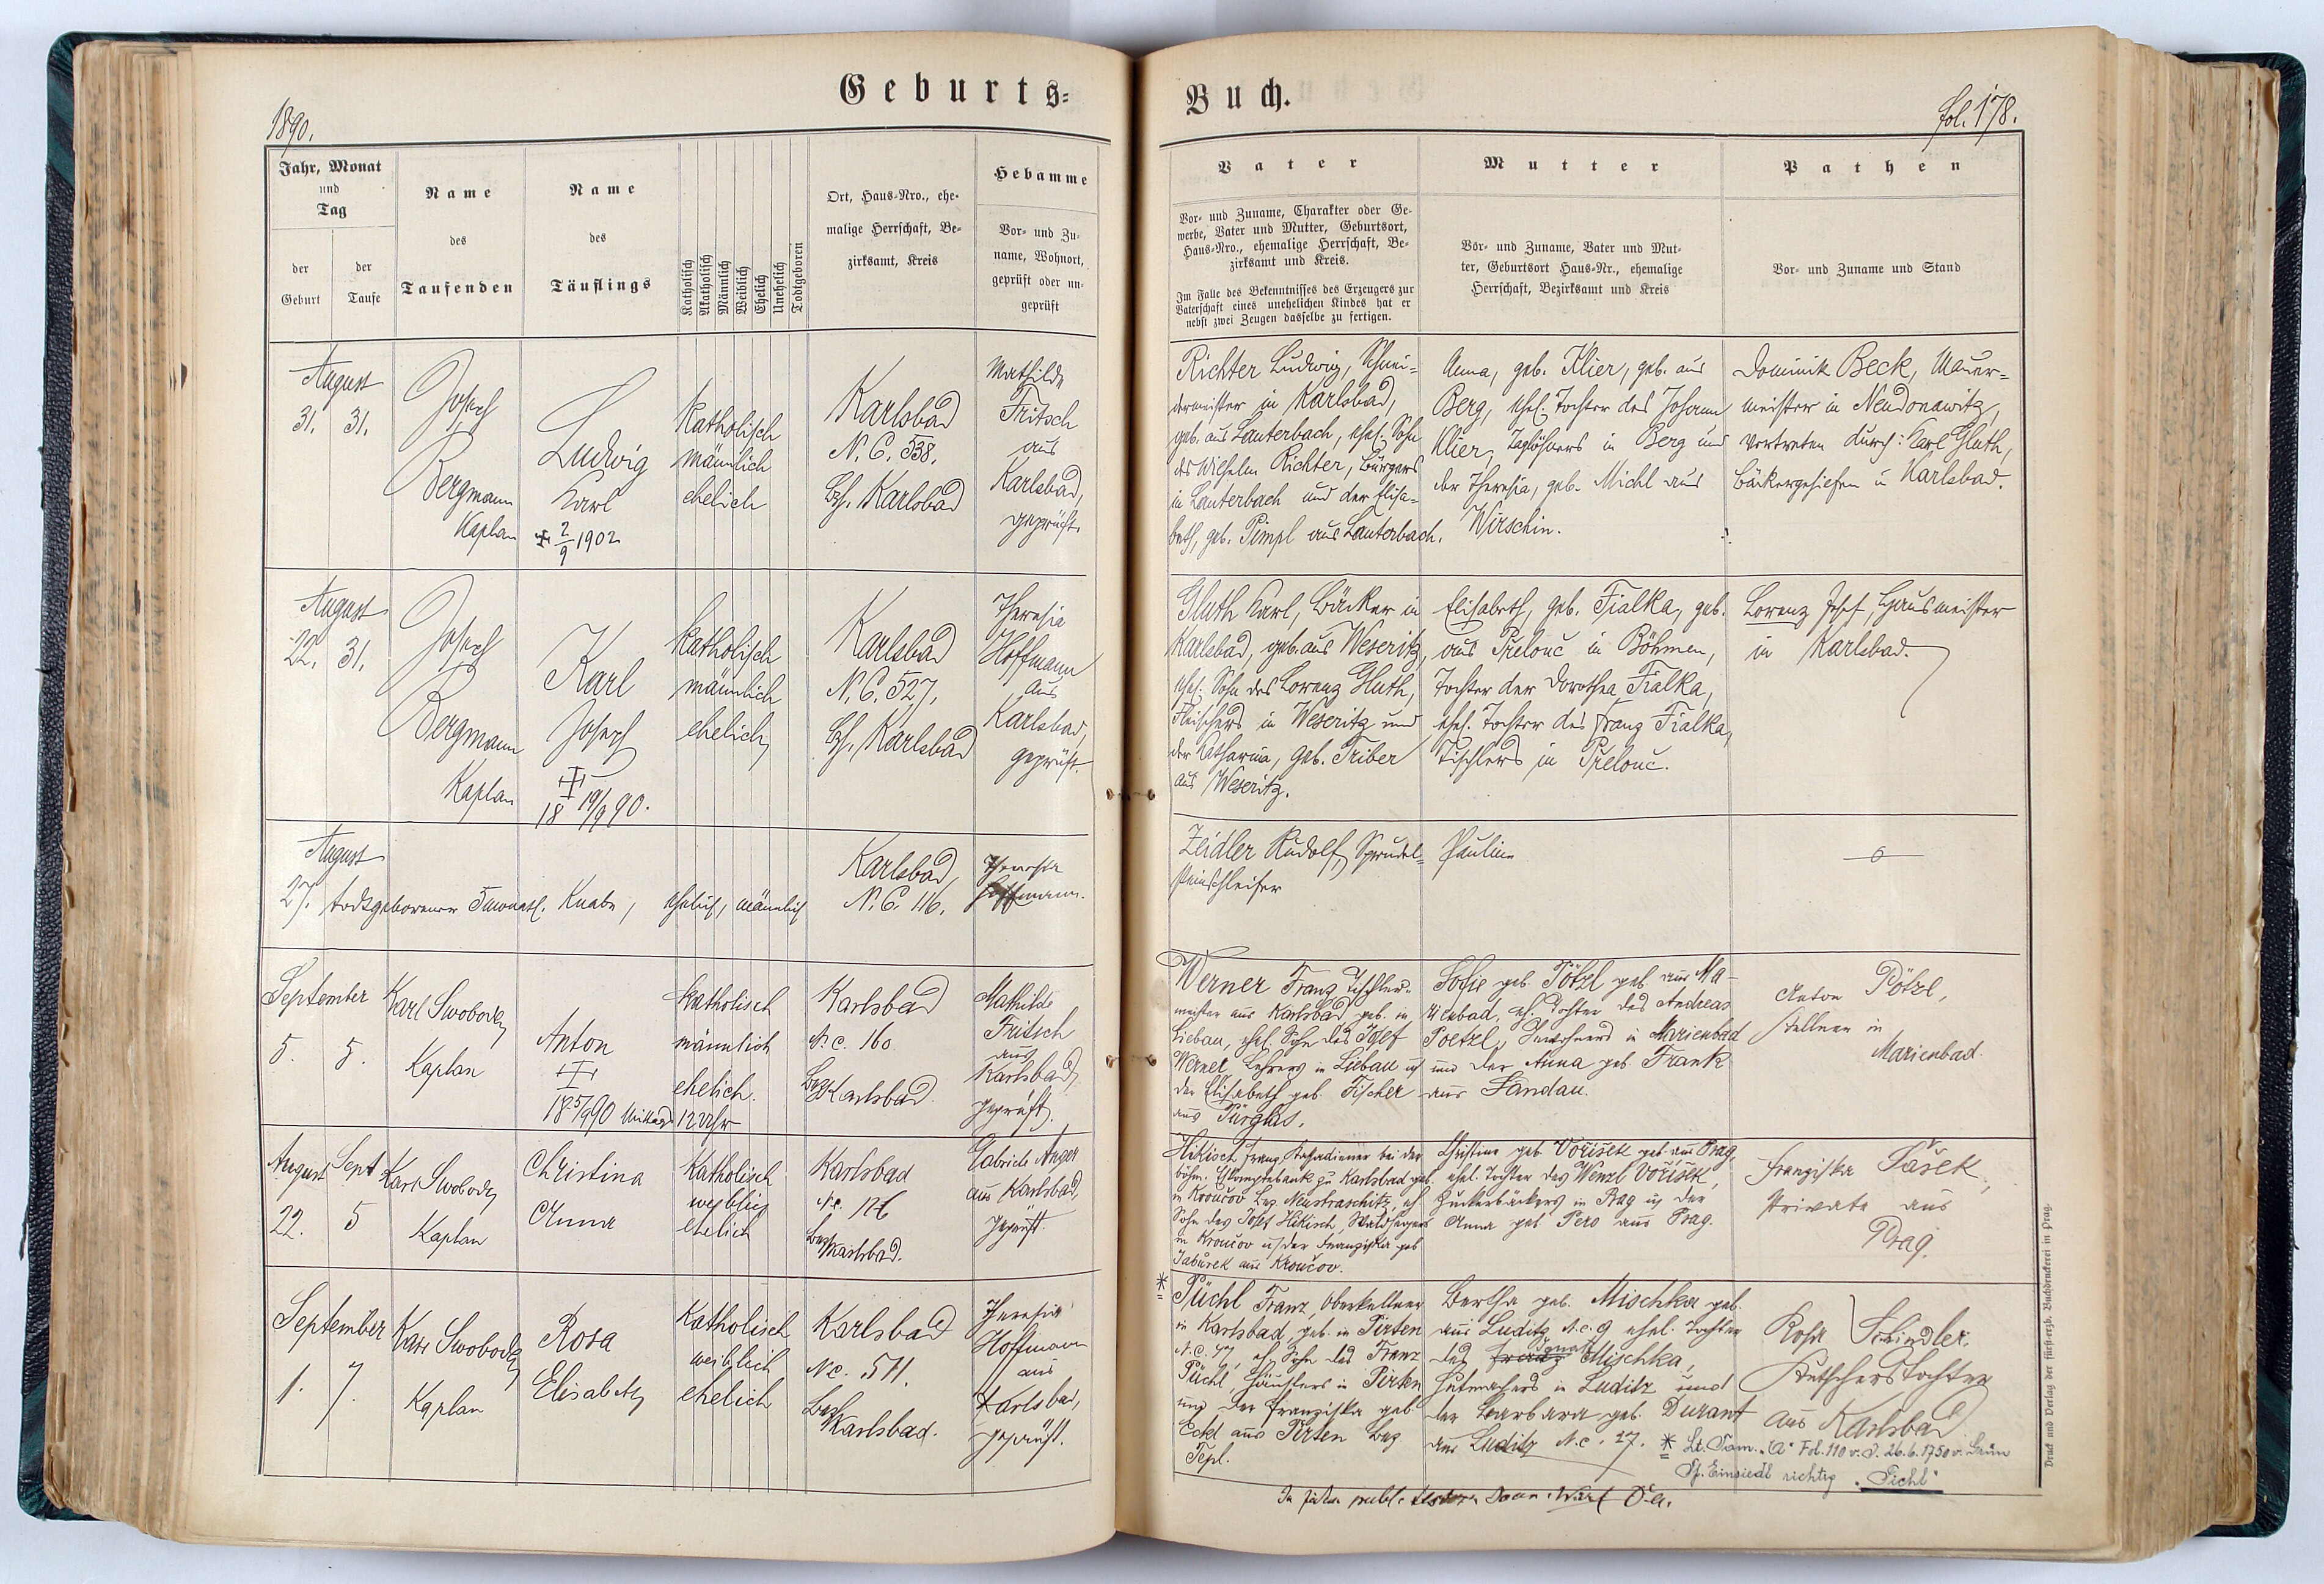 Geburts=
Buch.
1890.
fol. 178.
Jahr, Monat
und
Tag
der
Geburt
der
Taufe
Name
des
Taufenden
Name
des
Täuflings
Katholisch
Akatholisch
Männlich
Weiblich
Ehelich
Unehelich
Todtgeboren
Ort, Haus-Nro., ehe-
malige Herrschaft, Be-
zirksamt, Kreis
Hebamme
Vor- und Zu-
name, Wohnort,
geprüft oder un-
geprüft
Vater
Vor- und Zuname, Charakter oder Ge-
werbe, Vater und Mutter, Geburtsort,
Haus-Nro., ehemalige Herrschaft, Be-
zirksamt und Kreis.
Im Falle des Bekenntnisses des Erzeugers zur
Vaterschaft eines unehelichen Kindes hat er
nebst zwei Zeugen dasselbe zu fertigen.
Mutter
Vor- und Zuname, Vater und Mut-
ter, Geburtsort Haus-Nr., ehemalige
Herrschaft, Bezirksamt und Kreis
Pathen
Vor- und Zuname und Stand
August
31. 31.
Josef
Bergmann
Kaplan
Ludwig
Karl
2/9 1902
katholisch
männlich
ehelich
Karlsbad
N. C. 538.
Bzh. Karlsbad
Mathilde
Fritsch
aus
Karlsbad,
geprüft.
Richter Ludwig, Schnei-
dermeister in Karlsbad,
geb. aus Lauterbach, ehel. Sohn
des Wilhelm Richter, Bürgers
in Lauterbach und der Elisa-
beth, geb. Pimpl aus Lauterbach.
Anna, geb. Klier, geb. aus
Berg, ehel. Tochter des Johann
Klier, Taglöhners in Berg und
der Theresia, geb. Michl aus
Wirschin.
Dominik Beck, Mauer-
meister in Neudonawitz,
vertreten durch: Karl Gluth,
Bäckergehilfen in Karlsbad.
August
22. 31.
Josef
Bergmann
Kaplan
Karl
Josef
18 19/9 90.
katholisch
männlich
ehelich
Karlsbad
N. C. 527.
Bzh. Karlsbad
Theresia
Hoffmann
aus
Karlsbad,
geprüft.
Gluth Karl, Bäcker in
Karlsbad, geb. aus Weseritz,
ehel. Sohn des Lorenz Gluth,
Fleischers in Weseritz und
der Katharina, geb. Triber
aus Weseritz.
Elisabeth, geb. Fialka, geb.
aus Prelouc in Böhmen,
Tochter der Dorothea Fialka,
ehel. Tochter des Franz Fialka,
Tischlers in Prelouc.
Lorenz Josef, Hausmeister
in Karlsbad.
August
27. todtgeborener 5monatl. Knabe, ehelich, männlich
Karlsbad,
N. C. 116.
Theresia
Hoffmann.
Zeidler Rudolf, Sprudel-
steinschleifer
Pauline
September
5. 5.
Karl Swoboda
Kaplan
Anton
18 5/9 90 Mittag 12 Uhr
katholisch
männlich
ehelich.
Karlsbad
N. c. 160
Bez. Karlsbad
Mathilde
Fritsch
aus
Karlsbad,
geprüft.
Werner Franz Tischler-
meister aus Karlsbad, geb. in
Liebau, ehel. Sohn des Josef
Werner, Lehrers in Liebau u
der Elisabeth geb. Fischer
aus Pürgles.
Sofie geb. Pötzl geb. aus Ma-
rienbad, eh. Tochter des Andreas
Poetzl, Inwohners in Marienbad
und der Anna geb. Frank
aus Sandau.
Anton Pötzl,
Kellner in
Marienbad.
August Sept
22. 5
Karl Swoboda
Kaplan
Christina
Anna
Katholisch
weiblich
ehelich
Karlsbad
N. c.
Bez. Karlsbad.
Gabriele Anger
aus Karlsbad,
geprüft.
Hikisch Franz, Kassadiener bei der
böhm. Eskomptebank zu Karlsbad geb.
in Kroučov Bez Neustraschitz, eh
Sohn des Josef Hikisch, Waldhegers
in Kroučov u der Franziska geb
Jabůrek aus Kroučov.
Christine geb Voříšek geb. aus Prag,
ehel. Tochter des Wenzl Voříšek,
Zuckerbäckers in Prag u der
Anna geb Pero aus Prag.
Franziska Pašek,
Private aus
Prag.
September
1. 7.
Karl Swoboda
Kaplan
Rosa
Elisabeth
Katholisch
weiblich
ehelich
Karlsbad
Nc. 511.
Bez Karlsbad.
Theresia
Hoffmann
aus
Karlsbad,
geprüft.
* Püchl Franz, Oberkellner
in Karlsbad, geb. in Pirten
N. C. 77, eh Sohn des Franz
Püchl, Häuslers in Pirten
und der Franziska geb.
Eckl aus Pirten Bez
Tepl.
Bertha geb. Mischka geb.
aus Luditz N. c. 9 ehel. Tochter
des Ignatz Mischka,
Hutmachers in Luditz und
der Barbara geb. Durant
aus Luditz N. c. 17.
Rosa Schindler,
Kutscherstochter
aus Karlsbad
* Lt. Pam. "A" Fol. 110 v. J. 26.6.1750 v. Grün
Pf. Einsiedl richtig "Pichl"
Druck und Verlag der fürst-erzb. Buchdruckerei in Prag.